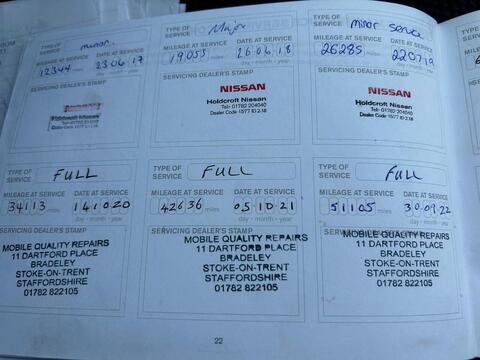 TYPE OF SERVICE minor
MILEAGE AT SERVICE DATE AT SERVICE
12344 miles 23 06 17
day - month - year
SERVICING DEALER'S STAMP
Holdcroft Nissan
TYPE OF SERVICE Major
MILEAGE AT SERVICE DATE AT SERVICE
19055 miles 26 06 18
day - month - year
SERVICING DEALER'S STAMP
NISSAN
Holdcroft Nissan
Tel: 01782 204040
Dealer Code 1577 ID 2.18
TYPE OF SERVICE minor service
MILEAGE AT SERVICE DATE AT SERVICE
26285 miles 220719
day - month - year
SERVICING DEALER'S STAMP
NISSAN
Holdcroft Nissan
Tel: 01782 204040
Dealer Code 1577 ID 2.18
TYPE OF SERVICE FULL
MILEAGE AT SERVICE DATE AT SERVICE
34113 miles 141020
day - month - year
MOBILE QUALITY REPAIRS
11 DARTFORD PLACE
BRADELEY
STOKE-ON-TRENT
STAFFORDSHIRE
01782 822105
TYPE OF SERVICE FULL
MILEAGE AT SERVICE DATE AT SERVICE
42636 miles 05 10 21
day - month - year
SERVICING DEALER'S STAMP
MOBILE QUALITY REPAIRS
11 DARTFORD PLACE
BRADELEY
STOKE-ON-TRENT
STAFFORDSHIRE
01782 822105
TYPE OF SERVICE FULL
MILEAGE AT SERVICE DATE AT SERVICE
51105 miles 30 09 22
day - month - year
MOBILE QUALITY REPAIRS
11 DARTFORD PLACE
BRADELEY
STOKE-ON-TRENT
STAFFORDSHIRE
01782 822105
22